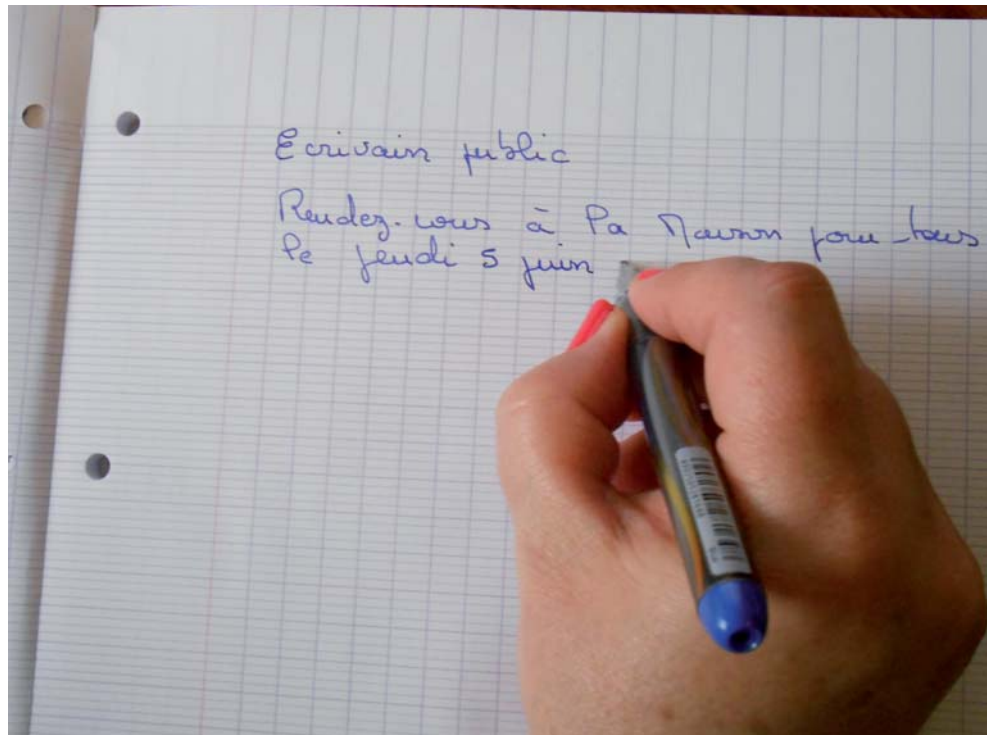 Ecrivain public
Rendez-vous à la Maison pour tous
le jeudi 5 juin